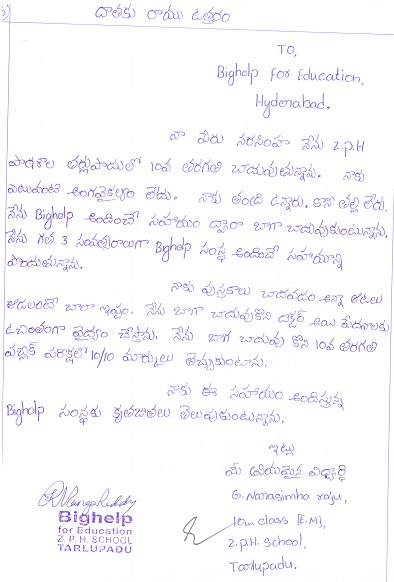 దాతకు రాయు ఉత్తరం
TO,
Bighelp For Education,
Hyderabad.
నా పేరు నరసింహ నేను Z.P.H
పాఠశాల తర్లుపాడులో 10వ తరగతి చదువుతున్నాను. నాకు
ఎటువంటి అంగవైకల్యం లేదు. నాకు తండ్రి ఉన్నారు. కానీ తల్లి లేరు.
నేను Bighelp అందించే సహాయం ద్వారా బాగా చదువుకుంటున్నాను.
నేను గత 3 సంవత్సరాలుగా Bighelp సంస్థ అందించే సహాయాన్ని
పొందుతున్నాను.
నాకు పుస్తకాలు చదవడం అన్నా ఆటలు
ఆడలంటే చాలా ఇష్టం. నేను బాగా చదువుకొని డాక్టర్ అయి పేదవాలకు
ఉచితంగా వైద్యం చేస్తాను. నేను బాగ చదువు కొని 10వ తరగతి
పబ్లిక్ పరీక్షలో 10/10 మార్కులు తెచ్చుకుంటాను.
నాకు ఈ సహాయం అందిస్తున్న
Bighelp సంస్థకు కృతజ్ఞతలు తెలుపుకుంటున్నాను.
ఇట్లు
మీ ప్రియమైన విద్యార్థి
G. Narasimha raju,
10th class [E.M],
Z.P.H. School,
Tarlupadu.
Bighelp
for Education
Z. P. H. SCHOOL
TARLUPADU